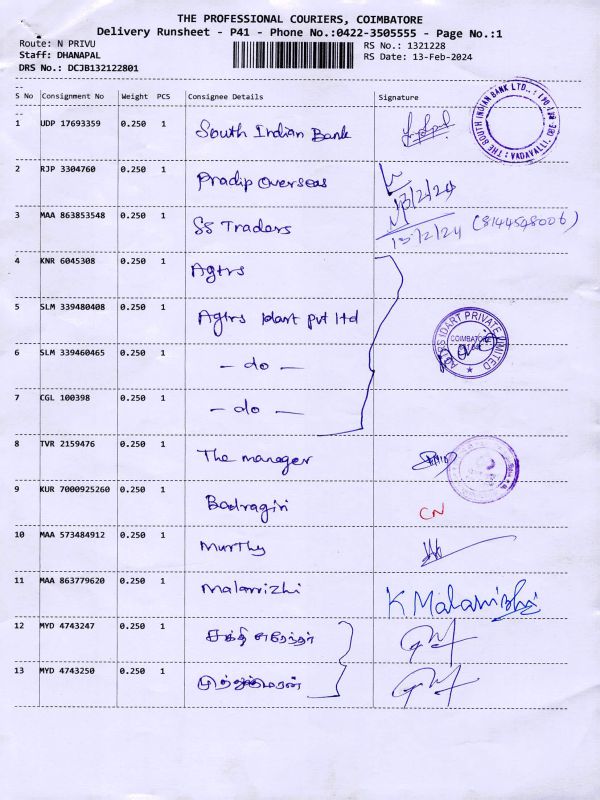 THE PROFESSIONAL COURIERS, COIMBATORE
Delivery Runsheet - P41 - Phone No.:0422-3505555 - Page No.:1
Route: N PRIVU RS No.: 1321228
Staff: DHANAPAL RS Date: 13-Feb-2024
DRS No.: DCJB132122801
S No Consignment No Weight PCS Consignee Details Signature
1 UDP 17693359 0.250 1 South Indian Bank
THE SOUTH INDIAN BANK LTD., VADAVALLI
2 RJP 3304760 0.250 1 Pradip Overseas 13/2/24
3 MAA 863853548 0.250 1 SS Traders 13/2/24 (8144548006)
4 KNR 6045308 0.250 1 Agtrs
5 SLM 339480408 0.250 1 Agtrs Idart pvt ltd
AGTRS IDART PRIVATE LIMITED COIMBATORE
6 SLM 339460465 0.250 1 - do -
7 CGL 100398 0.250 1 - do -
8 TVR 2159476 0.250 1 The manager
9 KUR 7000925260 0.250 1 Badragiri CN
10 MAA 573484912 0.250 1 Murthy
11 MAA 863779620 0.250 1 Malarvizhi K Malarvizhi
12 MYD 4743247 0.250 1 சக்தி சுரேந்தர்
13 MYD 4743250 0.250 1 முத்துக்குமரன்